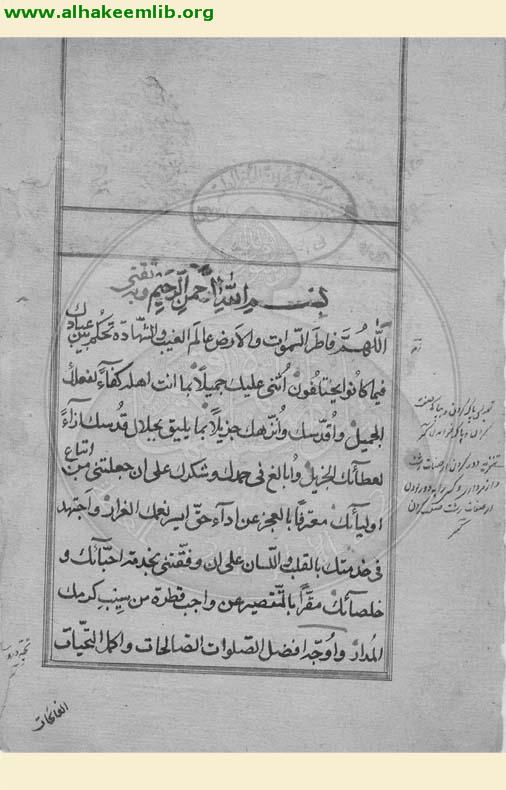 www.alhakeemlib.org
بسم الله الرحمن الرحيم وبه ثقتي
اللهم فاطر السموات والارض عالم الغيب والشهادة تحكم بين عبادك
فيما كانوا يختلفون اثنى عليك جميلا بما انت اهله كفاء لفعلك
الجميل واقدسك وانزهك جزيلا بما يليق بجلال قدسك ازاء
لعطائك الجزيل وابالغ فى حمدك وشكرك على ان جعلتنى من اتباع
اوليائك معترفا بالعجز عن اداء حق ايسر نعمك الغزار واجتهد
فى خدمتك بالقلب واللسان على ان وفقتنى بخدمة احبائك و
خلصائك مقرا بالتقصير عن واجب قطرة من سيب كرمك
المدار واوجه افضل الصلوات الصالحات واكمل التحيات